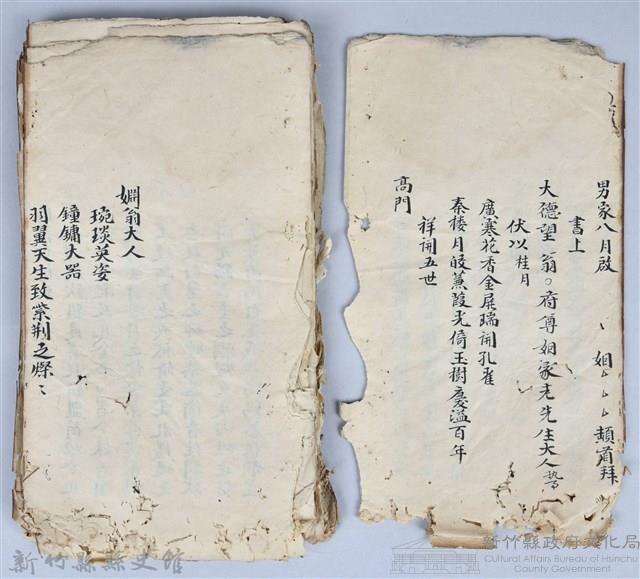 男家八月啟 姻ムム頓首拜
書上
大德望翁〇府尊姻家老先生大人熱
伏以桂月
廣寒花香金屏瑞開孔雀
秦楼月皎蒹葭光倚玉樹慶溢百年
祥開五世
高門
姻翁大人
琬琰英姿
鐘鏞大器
羽翼天生致紫荆之燦
新竹縣縣史館
新竹縣政府文化局
Cultural Affairs Bureau of Hsinchu County Government